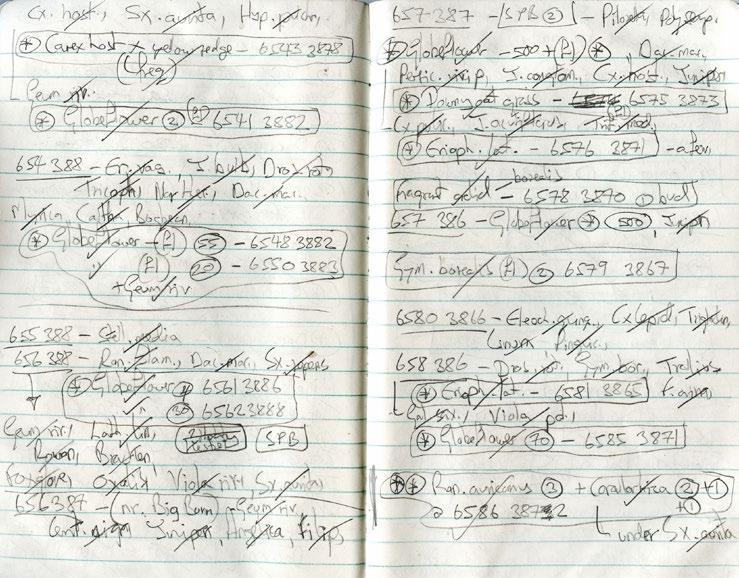 Cx. host., Sx. aurita, Hyp.
* Carex host x yellow sedge - 6543 3878
Geum riv.
* Globeflower 2 6541 3882
654 388 - J. bulb, Dros. rot
Tricoph, Narthec, Dac. mac.
Myrica, Caltha,
* Globeflower - (fl) 55 - 6548 3882
(fl) 20 - 6550 3883
+ Geum riv
655 388 - Stell. media
656 388 - Ran. flam., Dac. mac., Sx. repens
* Globeflower 6561 3886
30 6562 3888
Geum riv., Lath. lin, SPB
Rowan, Bracken
Foxglove, Oxalis, Viola riv, Sx. aurita
656 387 - (nr. Big Burn) - Geum riv
Cent. nigra, Juniper, Angelica, Filip,
657 387 - SPB 2 - Pilosella, Polyserp.
* Globeflower - 500+ (fl) *, Dac. mac,
J. conglom, Cx. host., Juniper
* Downy oat grass - 6575 3873
J. acutiflorus, Trif. med,
* Erioph. lat. - 6576 3871 - a few
borealis
Fragrant orchid - 6578 3870 1 bud
657 386 - Globeflower * 500, Junip
Gym. borealis (fl) 2 6579 3867
6580 3866 - Eleoch. quinq., Cx lepid, Triglochin,
Linum, Pinguic,
658 386 - Dros. rot., Gym. bor., Trollius
* Erioph. lat. - 6581 3865
Viola pal,
* Globeflower 70 - 6585 3871
** Ran. auricomus 3 + Corallorhiza 2 +1
@ 6586 3872 +1
under Sx. aurita